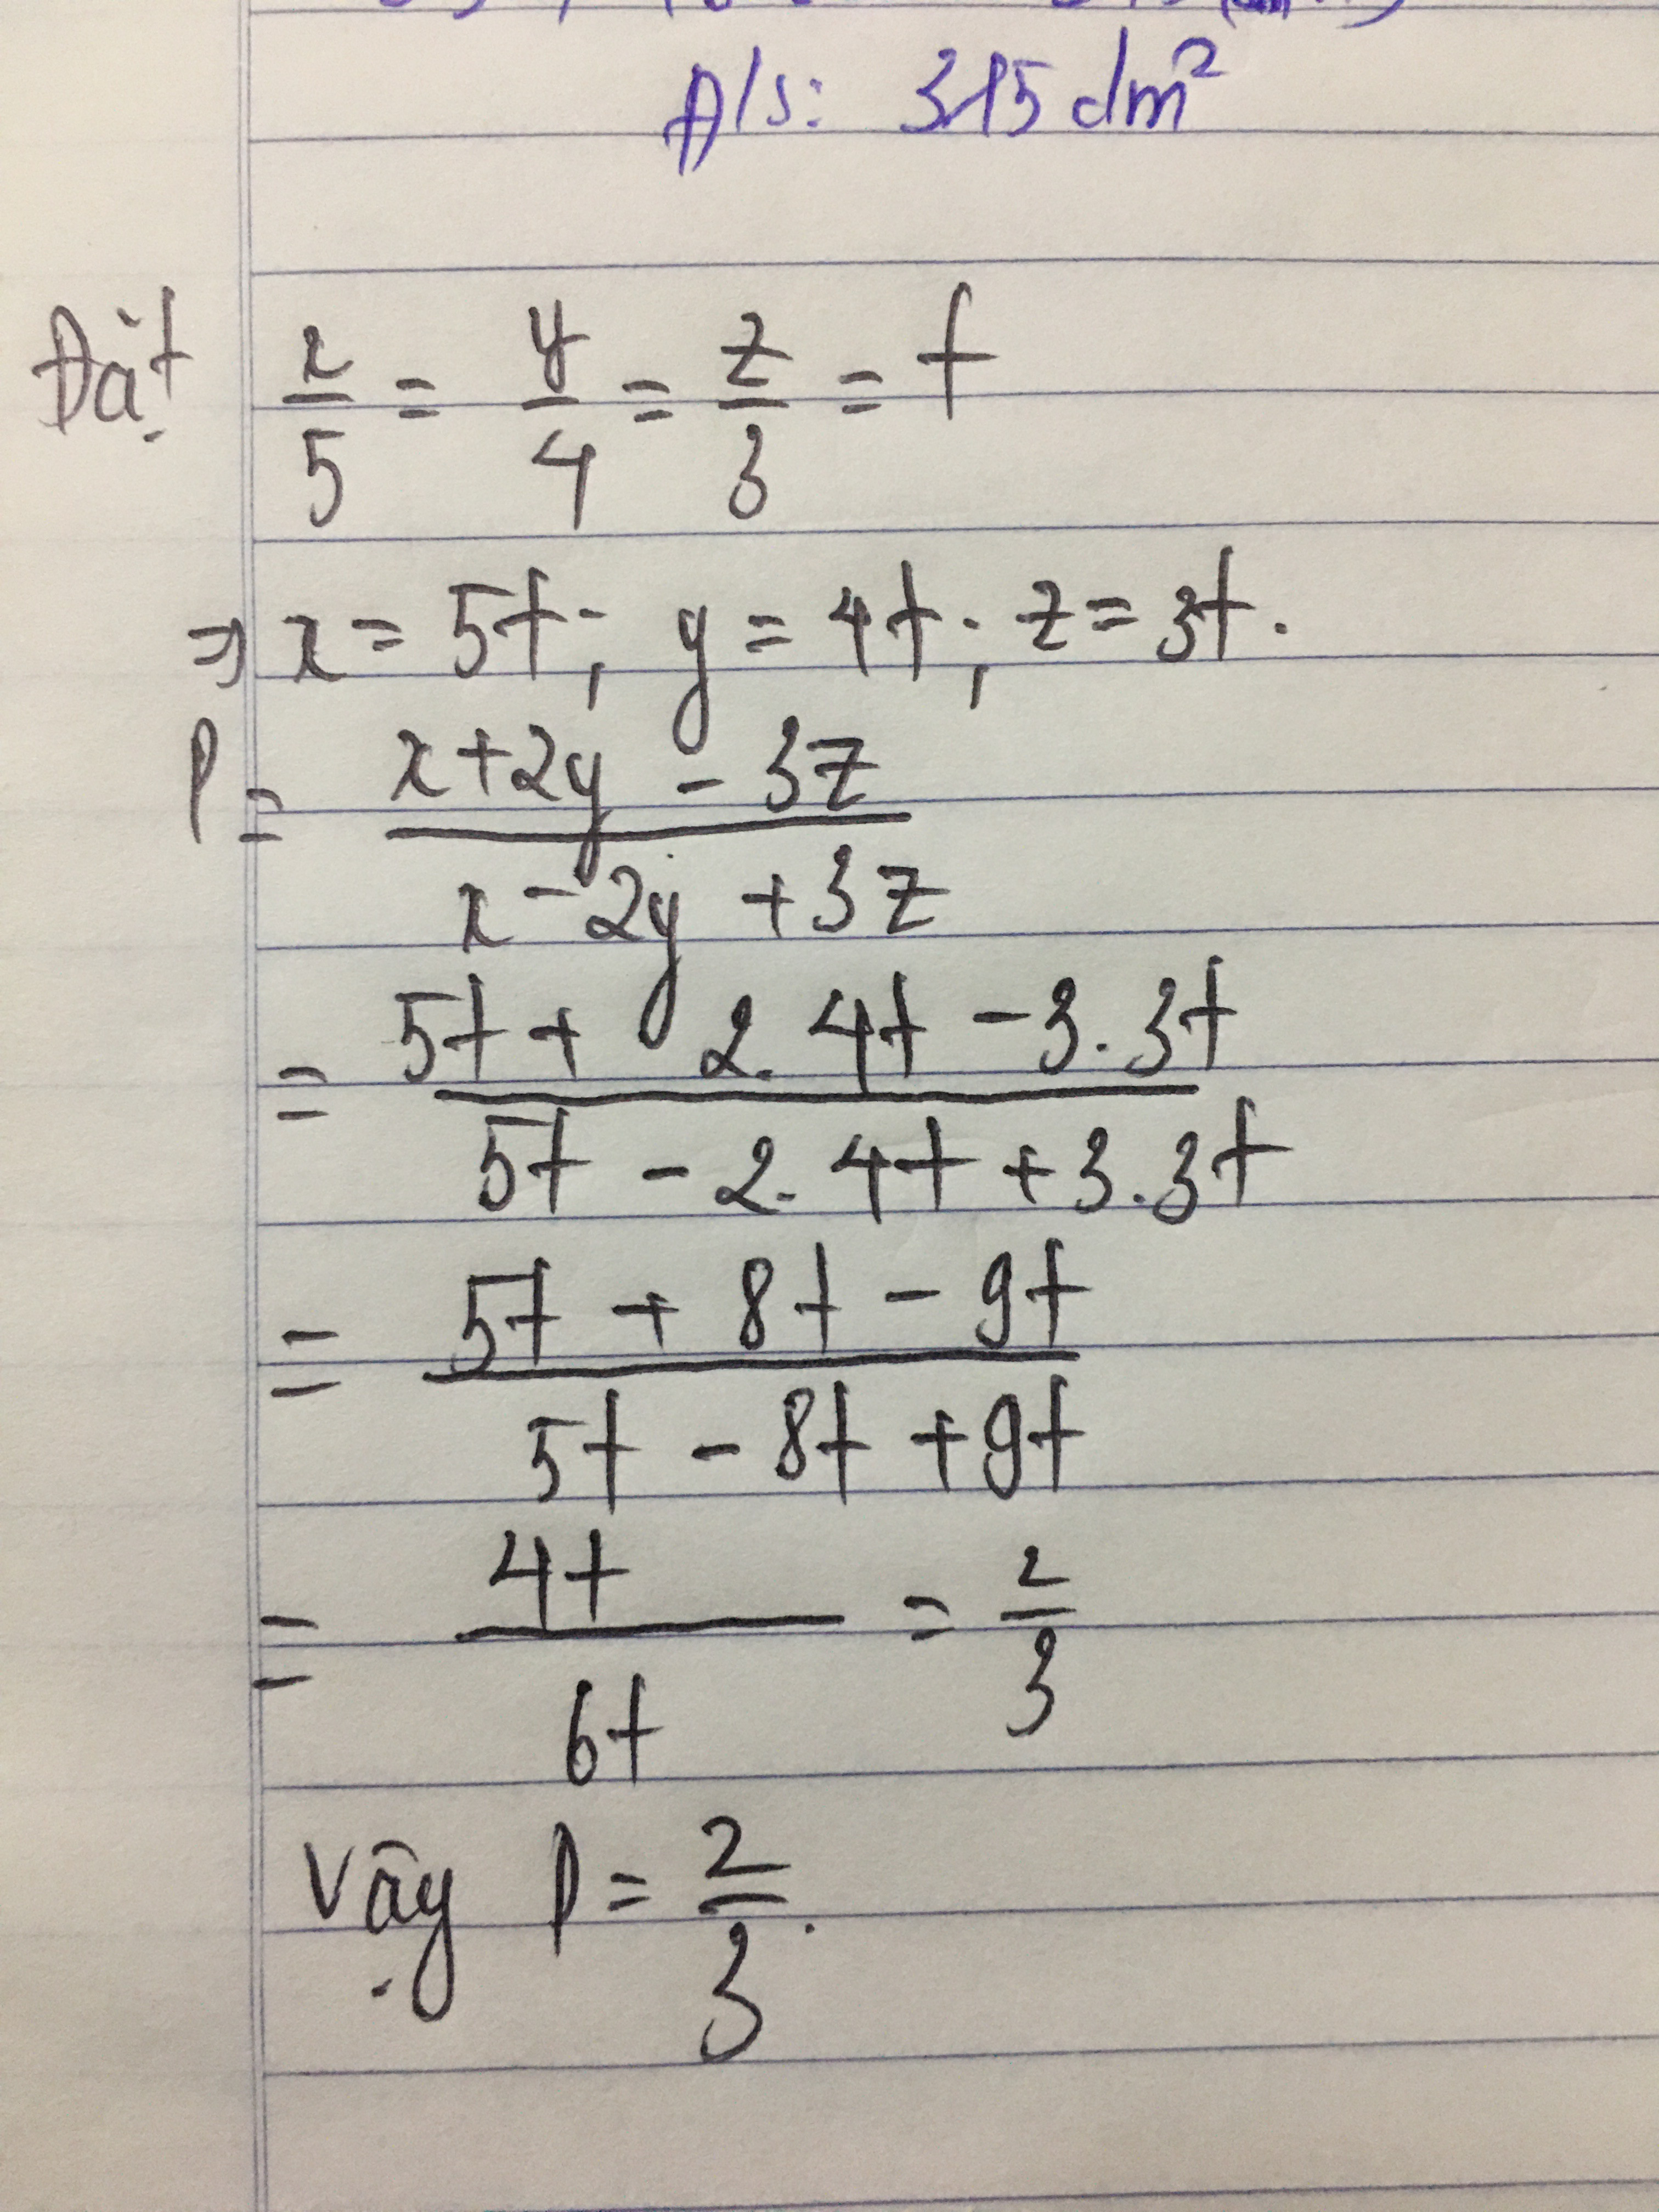 Đ/s: 315 dm²
Đặt x/5 = y/4 = z/3 = t
⇒ x = 5t; y = 4t; z = 3t.
P = (x + 2y - 3z)/(x - 2y + 3z)
= (5t + 2. 4t - 3. 3t)/(5t - 2. 4t + 3. 3t)
= (5t + 8t - 9t)/(5t - 8t + 9t)
= 4t/6t = 2/3
Vậy P = 2/3.